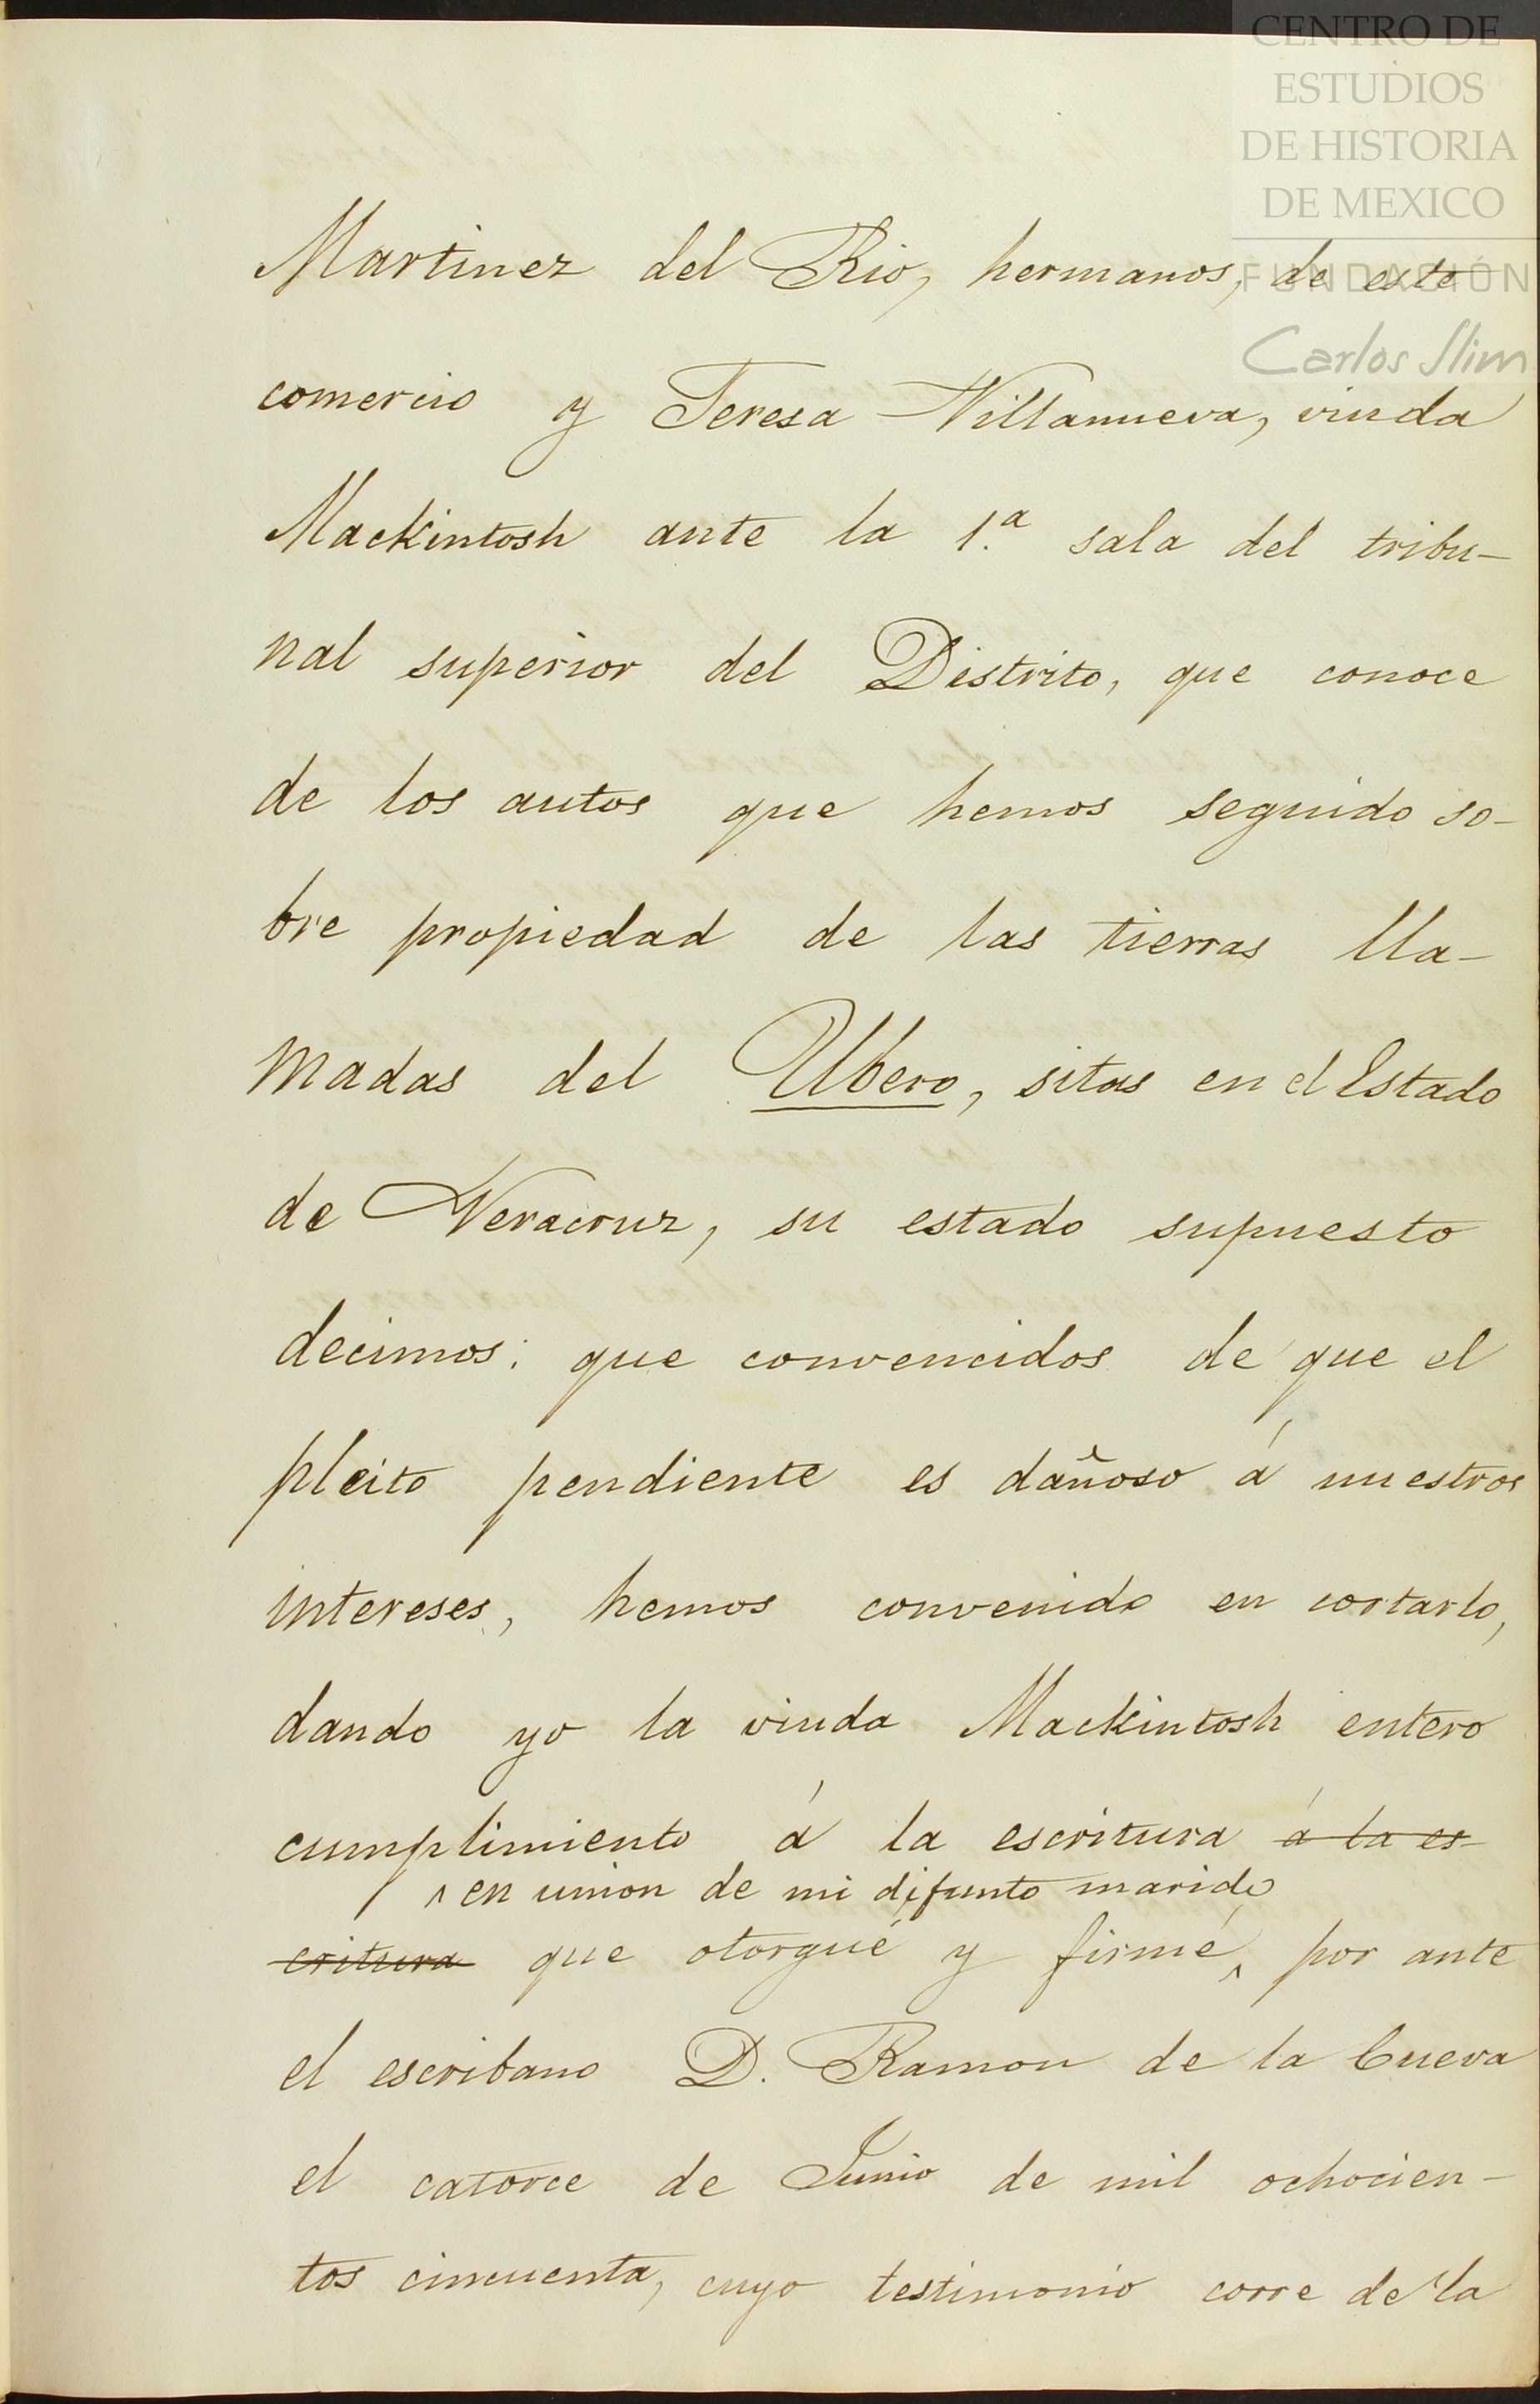 CENTRO DE
ESTUDIOS
DE HISTORIA
DE MEXICO
FUNDACIÓN
Carlos Slim
Martinez del Rio, hermanos, de este
comercio y Teresa Villanueva, viuda
Mackintosh ante la 1.ª sala del tribu-
nal superior del Distrito, que conoce
de los autos que hemos seguido so-
bre propiedad de las tierras lla-
madas del Ubero, sitas en el Estado
de Veracruz, su estado supuesto
decimos: que convencidos de que el
pleito pendiente es dañoso á nuestros
intereses, hemos convenido en cortarlo,
dando yo la viuda Mackintosh entero
cumplimiento á la escritura á la es-
^ en union de mi difunto marido
critura que otorgué y firmé ^ por ante
el escribano D. Ramon de la Cueva
el catorce de Junio de mil ochocien-
tos cincuenta, cuyo testimonio corre de la